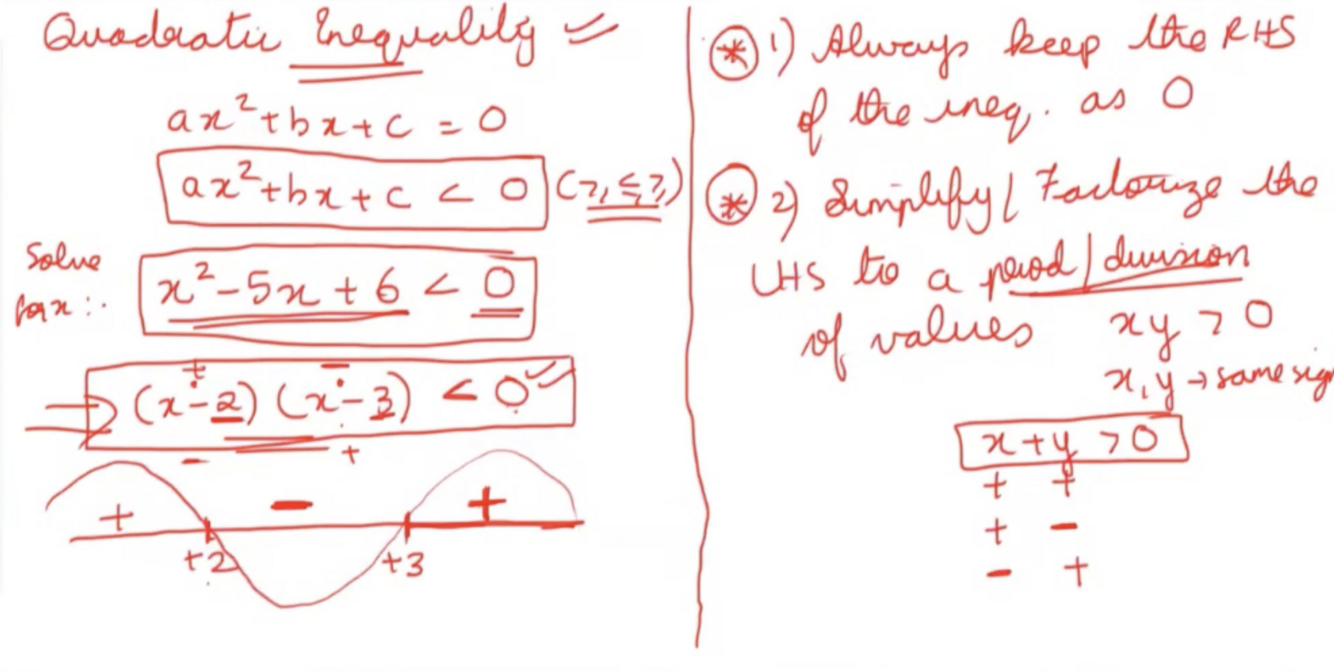 Quadratic Inequality
ax²+bx+c = 0
ax²+bx+c < 0 (>, ≤, ≥)
Solve
for x :-
x²-5x+6 < 0
+ -
(x-2) (x-3) < 0
- +
+ - +
+2 +3
* 1) Always keep the RHS
of the ineq. as 0
* 2) Simplify/ Factorize the
LHS to a prod/division
of values
xy > 0
x, y → same sign
x+y > 0
+ +
+ -
- +